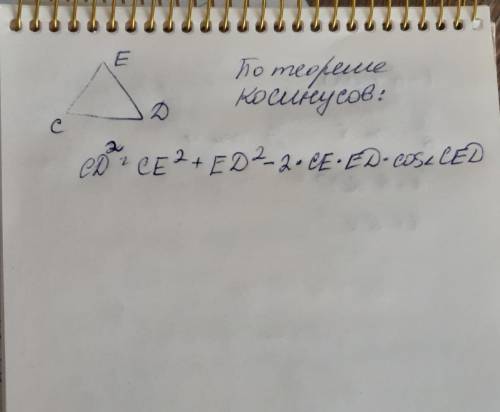 E
По теореме
косинусов:
C
D
CD² = CE² + ED² - 2 · CE · ED · cos ∠ CED